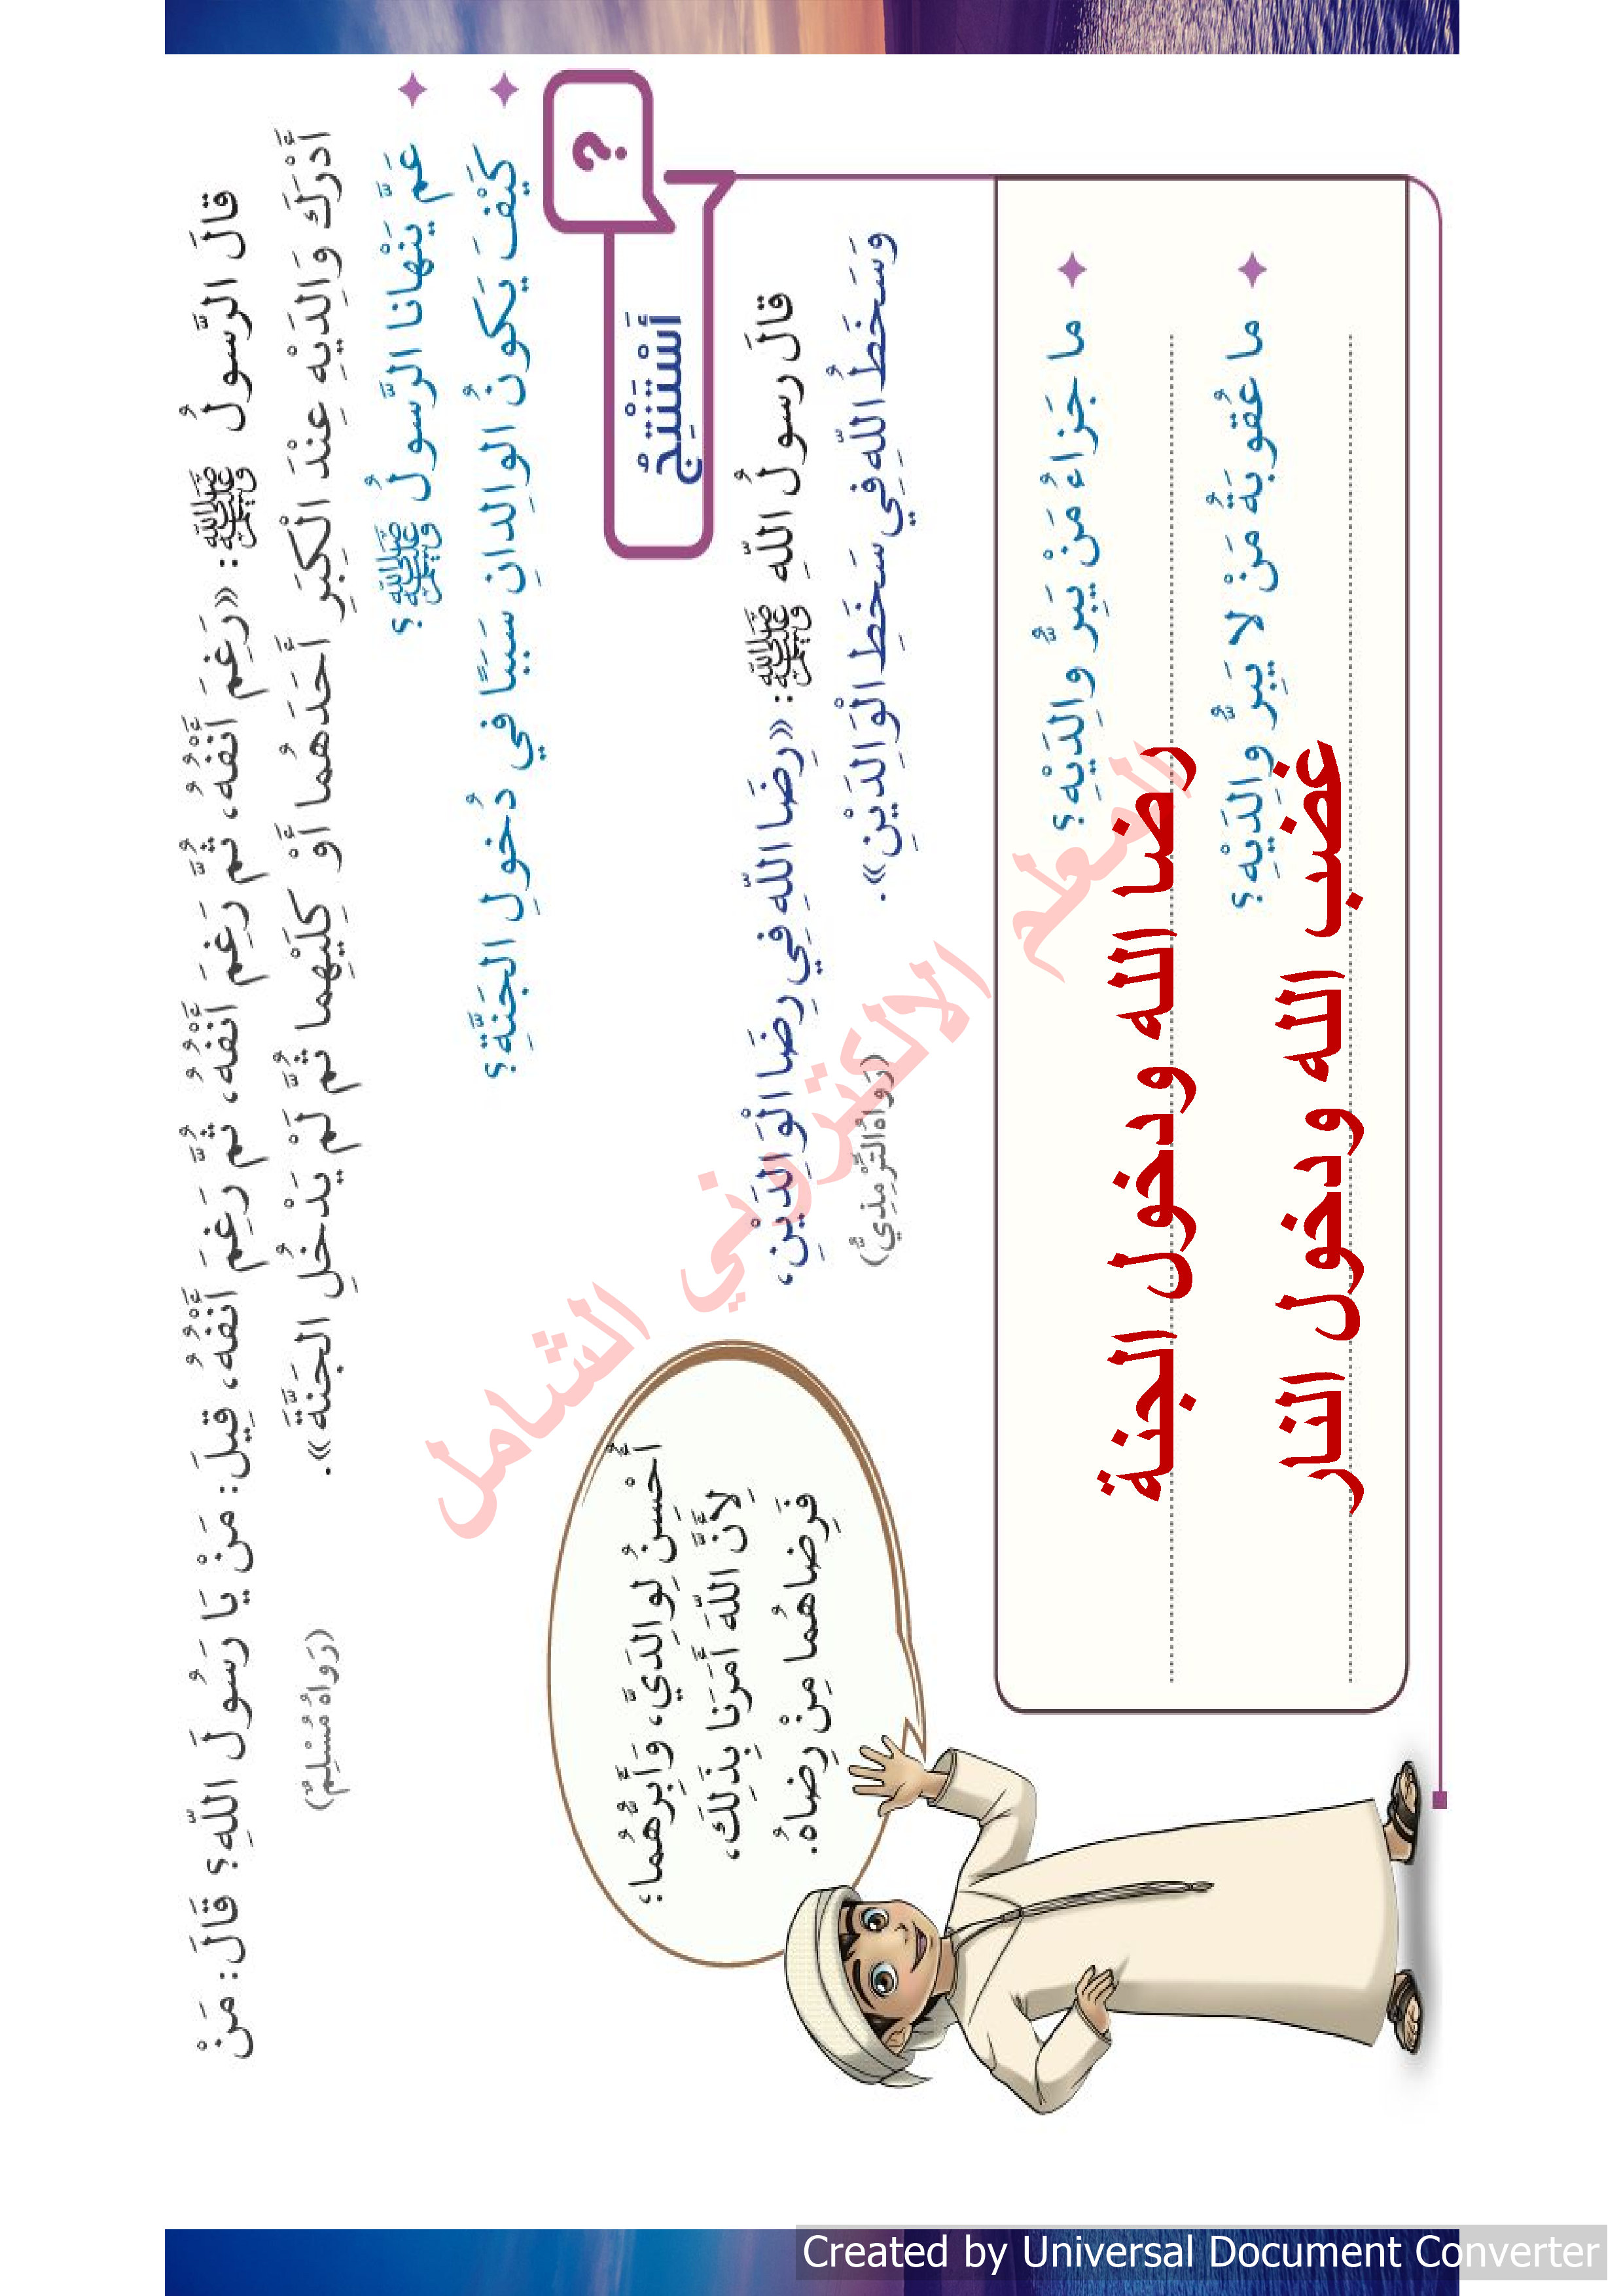 قالَ الرَّسولُ ﷺ: «رَغِمَ أَنْفُهُ، ثُمَّ رَغِمَ أَنْفُهُ، ثُمَّ رَغِمَ أَنْفُهُ، قِيلَ: مَنْ يَا رَسُولَ اللّهِ؟ قَالَ: مَنْ
أَدْرَكَ وَالِدَيْهِ عِنْدَ الْكِبَرِ أَحَدَهُما أَوْ كِلَيْهِما ثُمَّ لَمْ يَدْخُلِ الجَنَّةَ».
(رَواهُ مُسْلِمٌ)
عَمَّ يَنْهانا الرَّسولُ ﷺ؟
كَيْفَ يَكونُ الوالِدانِ سَبَبًا في دُخولِ الجَنَّةِ؟
?
أَسْتَنْتِجُ
قالَ رسولُ اللّهِ ﷺ: «رِضَا اللّهِ فِي رِضَا الْوَالِدَيْنِ،
وَسَخَطُ اللّهِ فِي سَخَطِ الْوَالِدَيْنِ».
(رَوَاهُ التِّرْمِذِيُّ)
أُحْسِنُ لِوالِدَيَّ، وَأَبَرُّهُما؛
لِأَنَّ اللّهَ أَمَرَنا بِذَلِكَ،
فَرِضاهُما مِنْ رِضاهُ.
ما جَزاءُ مَنْ يَبَرُّ والِدَيْهِ؟
رضا الله ودخول الجنة
ما عُقوبَةُ مَنْ لا يَبَرُّ والِدَيْهِ؟
غضب الله ودخول النار
المعلم الالكتروني الشامل
Created by Universal Document Converter